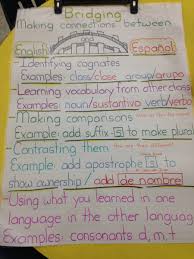 Bridging
Making connections between
and
English Español
-Identifying cognates
Examples: class/clase group/grupo
-Learning vocabulary from other class
Examples: noun/sustantivo verb/verbo
-Making comparisons
Example: add suffix -s to make plural
-Contrasting them
Example: add apostrophe s to
show ownership / add de nombre
-Using what you learned in one
language in the other language
Examples: consonants d, m, t